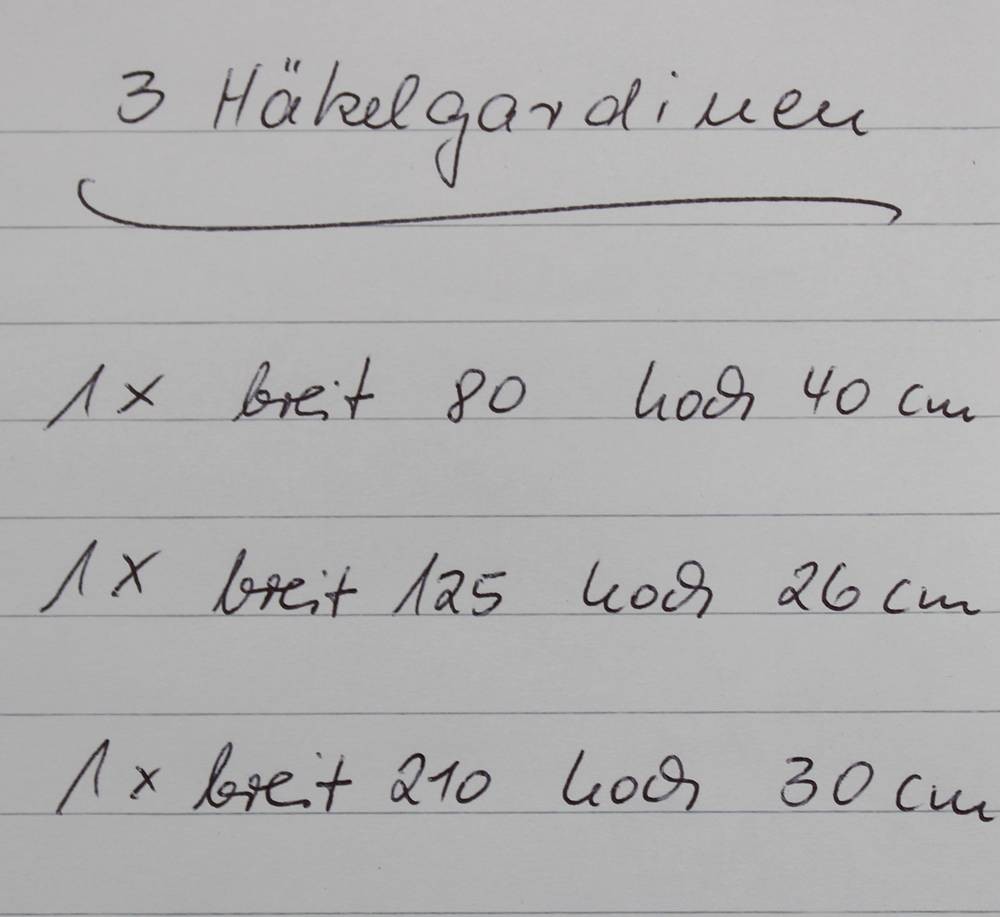 3 Häkelgardinen
1x breit 80 hoch 40 cm
1x breit 125 hoch 26 cm
1x breit 210 hoch 30 cm